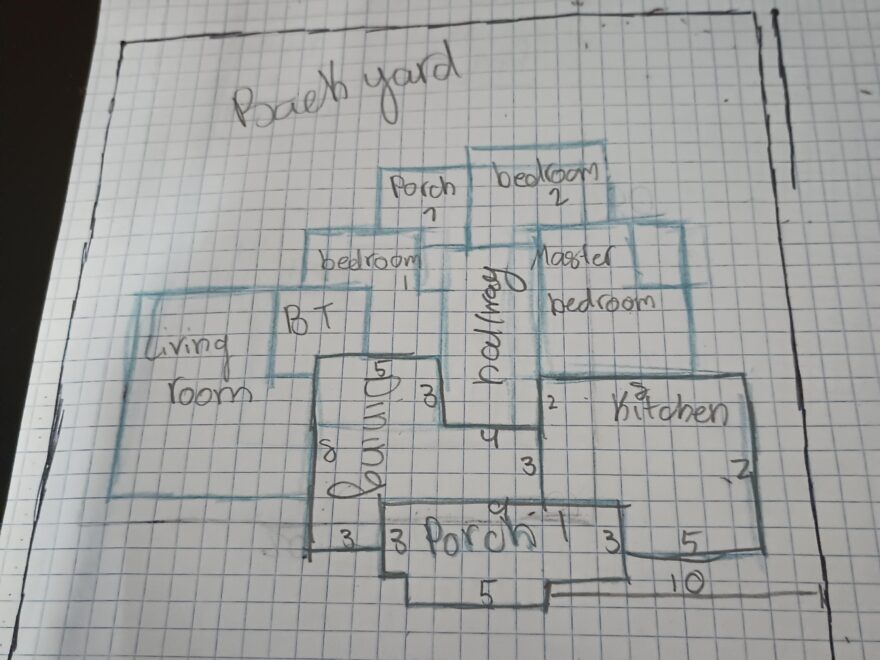 Back yard
Porch
2
bedroom
2
bedroom
1
hallway
Master
bedroom
Living
room
BT
5
3
8
Dining
4
3
2
8
Kitchen
7
3
3
Porch 1
9
3
5
10
5